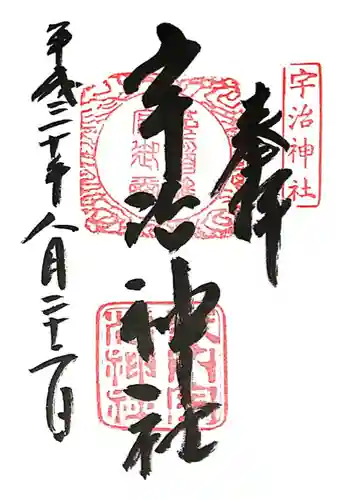 奉拝
宇治神社
宇治神社
平成三十年八月二十二日